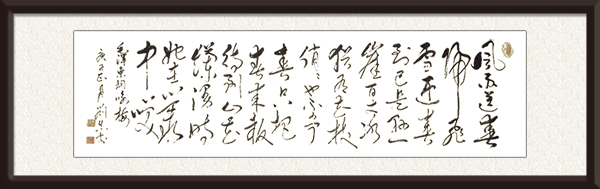 风雨送春
归飞
雪迎春
到已是悬
崖百丈冰
犹有花枝
俏俏也不争
春只把
春来报
待到山花
烂漫时
她在丛
中笑
毛泽东词咏梅